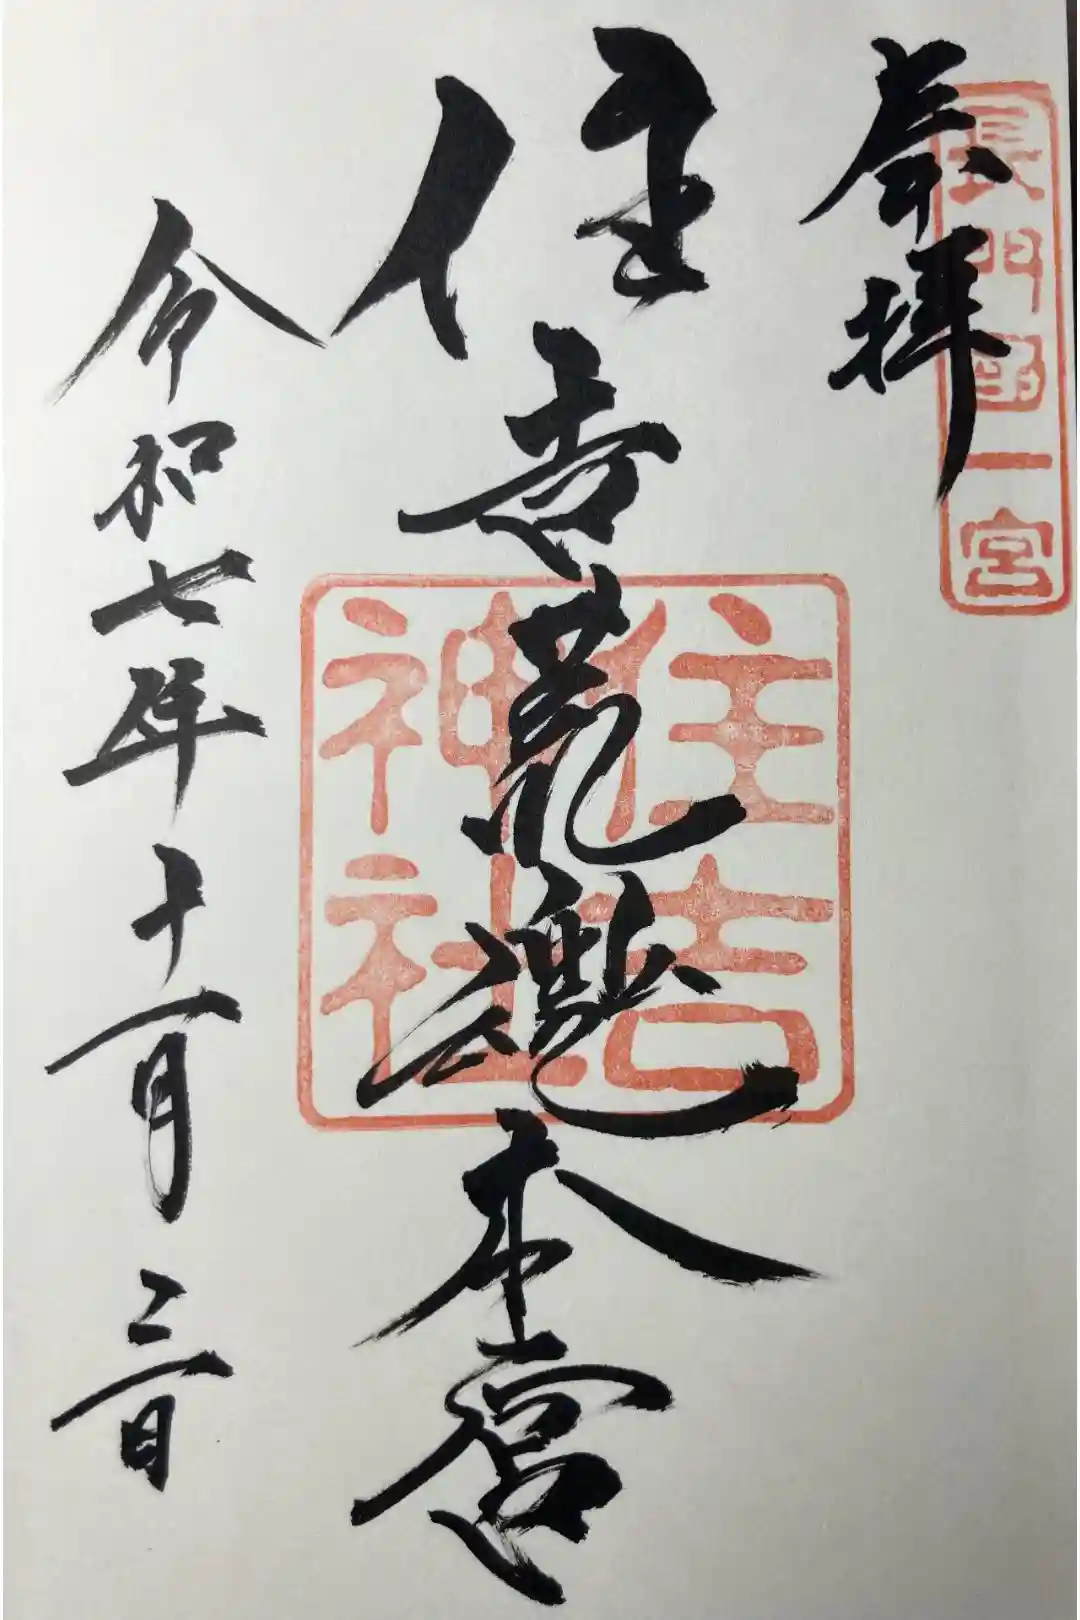 奉拝
長門國一宮
住吉荒魂本宮
住吉
神社
令和七年十一月三日